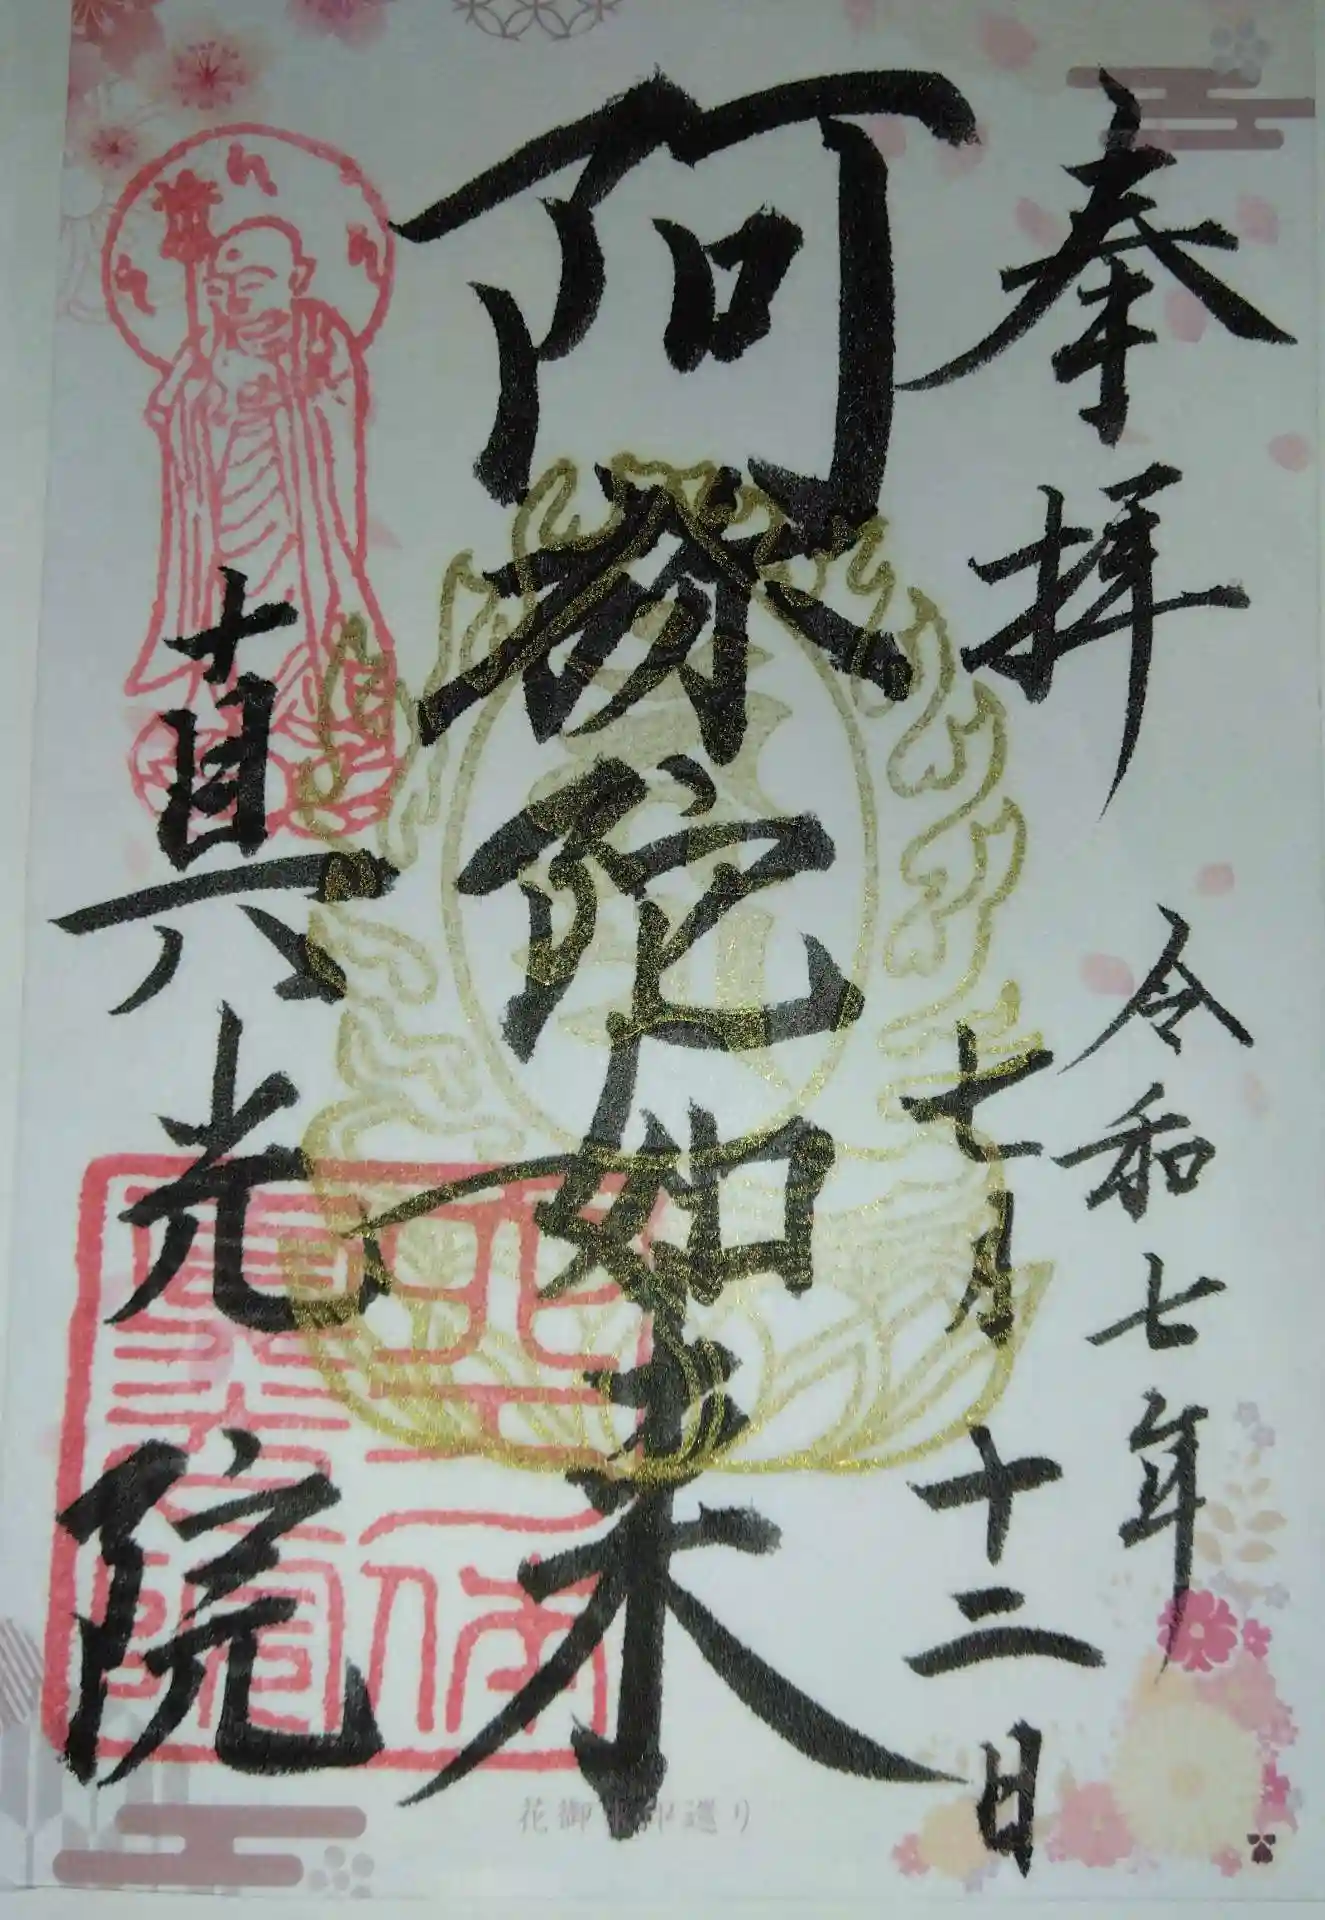 奉拝
令和七年
七月十二日
阿弥陀如来
真光院
花御朱印巡り